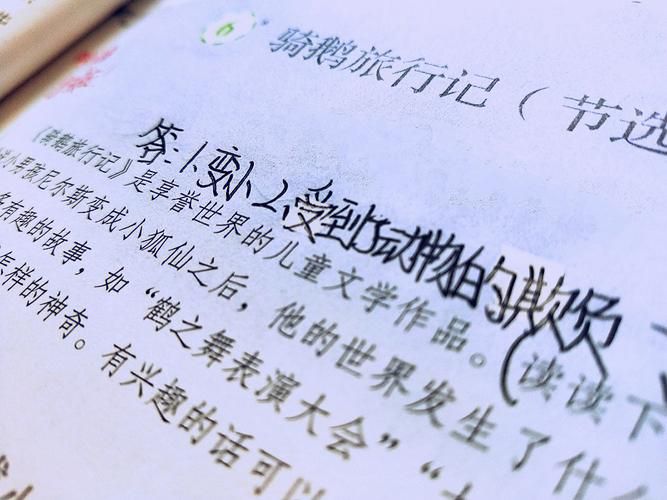 6
骑鹅旅行记(节选
答:1.变小 2.受到小动物的欺负
《骑鹅旅行记》是享誉世界的儿童文学作品。(读读下
小男孩尼尔斯变成小狐仙之后,他的世界发生了什么
有趣的故事,如“鹤之舞表演大会”“
怎样的神奇。有兴趣的话可以